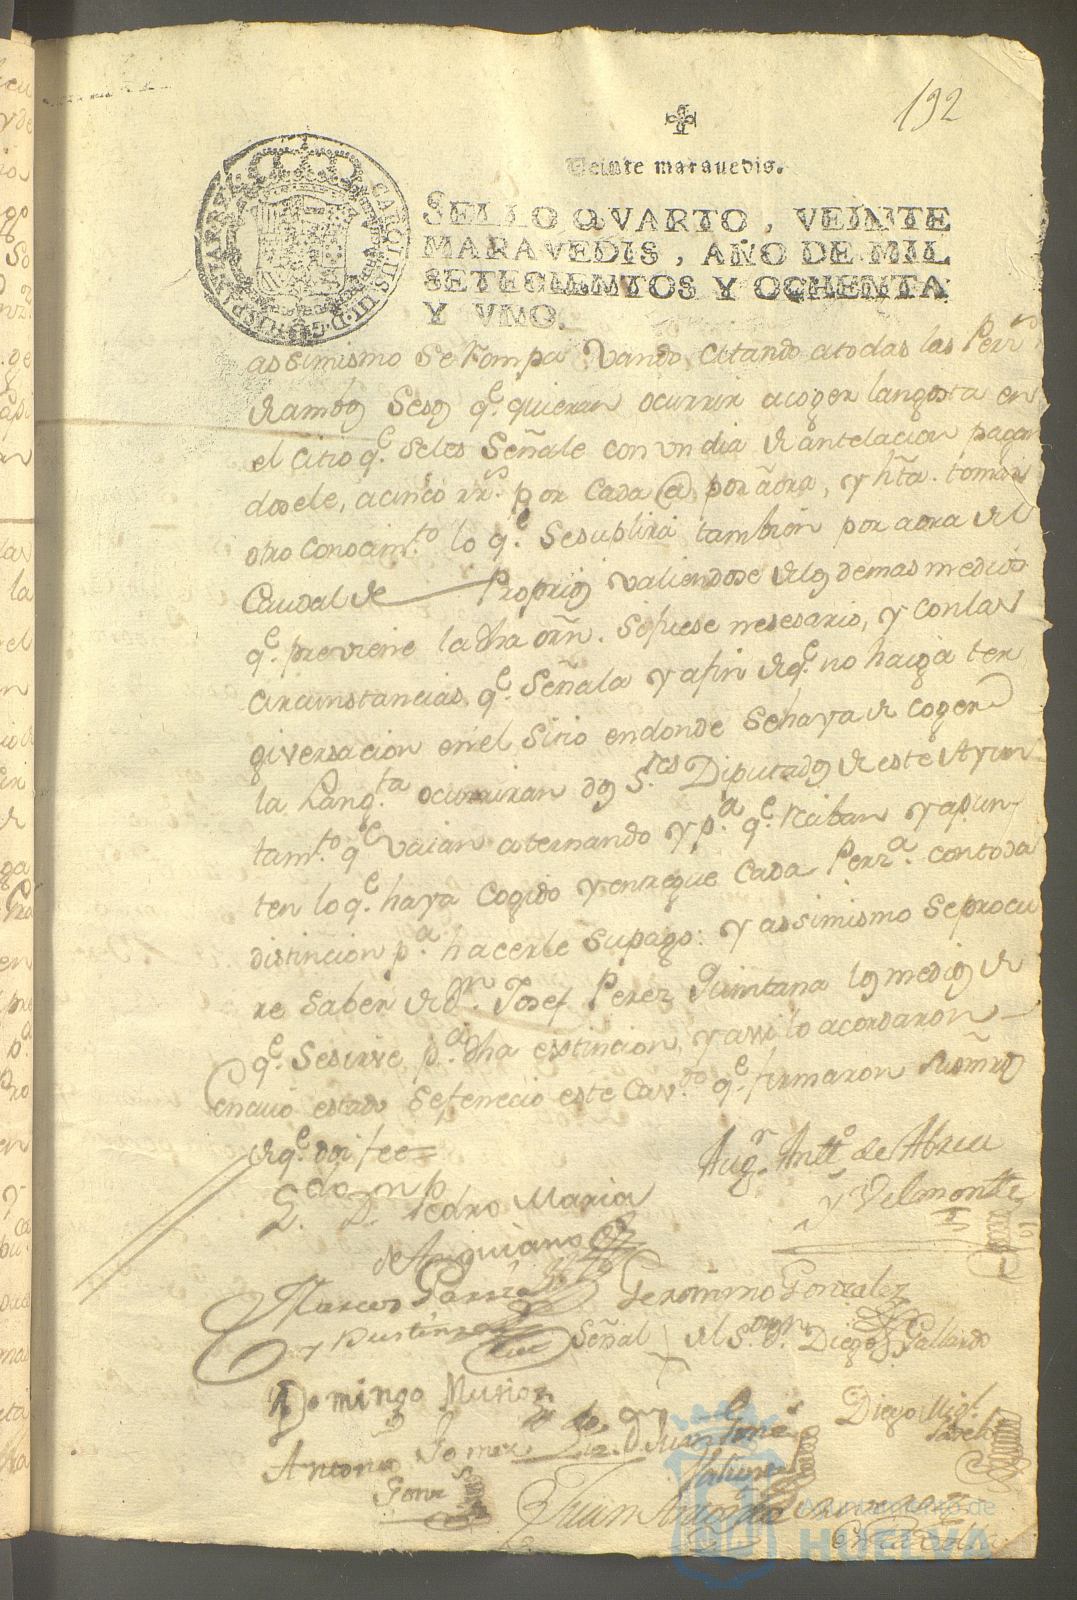 192
Veinte maravedis.
SELLO QVARTO, VEINTE
MARAVEDIS, AÑO DE MIL
SETECIENTOS Y OCHENTA
Y VNO.
CAROLUS III D G HISPANIAR
assimismo se rompa vando citando atodas las Perr.s
de ambos Sesos q.e quieran ocurrir acoger langosta en
el citio q.e seles Señale con vn dia de antelacion pagan
dosele, acinco rr.s por cada @ por aora, y hta. tomar
otro conocim.to lo q.e Sesuplira tambien por aora del
Caudal de Proprios valiendose delos demas medios
q.e previene la dha orn. Sifuese nesesario, y conlas
circunstancias q.e Señala y afin deq.e no haiga ter
giversacion en el Sitio endonde sehaya de coger
la Lang.ta ocurriran dos S.res Diputados de este Ayun
tam.to q.e vaian aternando y p.a q.e reciban y apun
ten lo q.e haya cogido y entregue cada Perz.a con toda
distincion p.a hacerle su pago: y assimismo se procu
re saber de d.n Josef Perez Quintana los medios de
q.e Sesirve p.a dha extincion, y assi lo acordaron
en cuio estado sefenecio este Cav.do q.e firmaron sus mrds
deq.e doi fee=
Aug.n Antt.o de Abreu
y Velmonte
L.do D.n Pedro Maria
de Anguiano
Marcos Garzia
Geronimo Gonzalez
y Bustinza
Señal del S.or D.n Diego Gallardo
Domingo Muñoz
Diego Mig.l
Antonio Gomez
L.do D. Juan
Juan Antonio
Ayuntamiento de
HUELVA